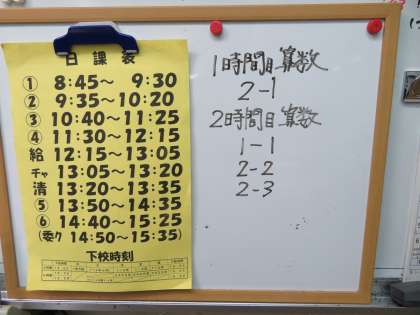 日課表
① 8:45〜 9:30
② 9:35〜10:20
③ 10:40〜11:25
④ 11:30〜12:15
給 12:15〜13:05
チャ 13:05〜13:20
清 13:20〜13:35
⑤ 13:50〜14:35
⑥ 14:40〜15:25
(委ク 14:50〜15:35)
下校時刻
1時間目 算数
2-1
2時間目 算数
1-1
2-2
2-3